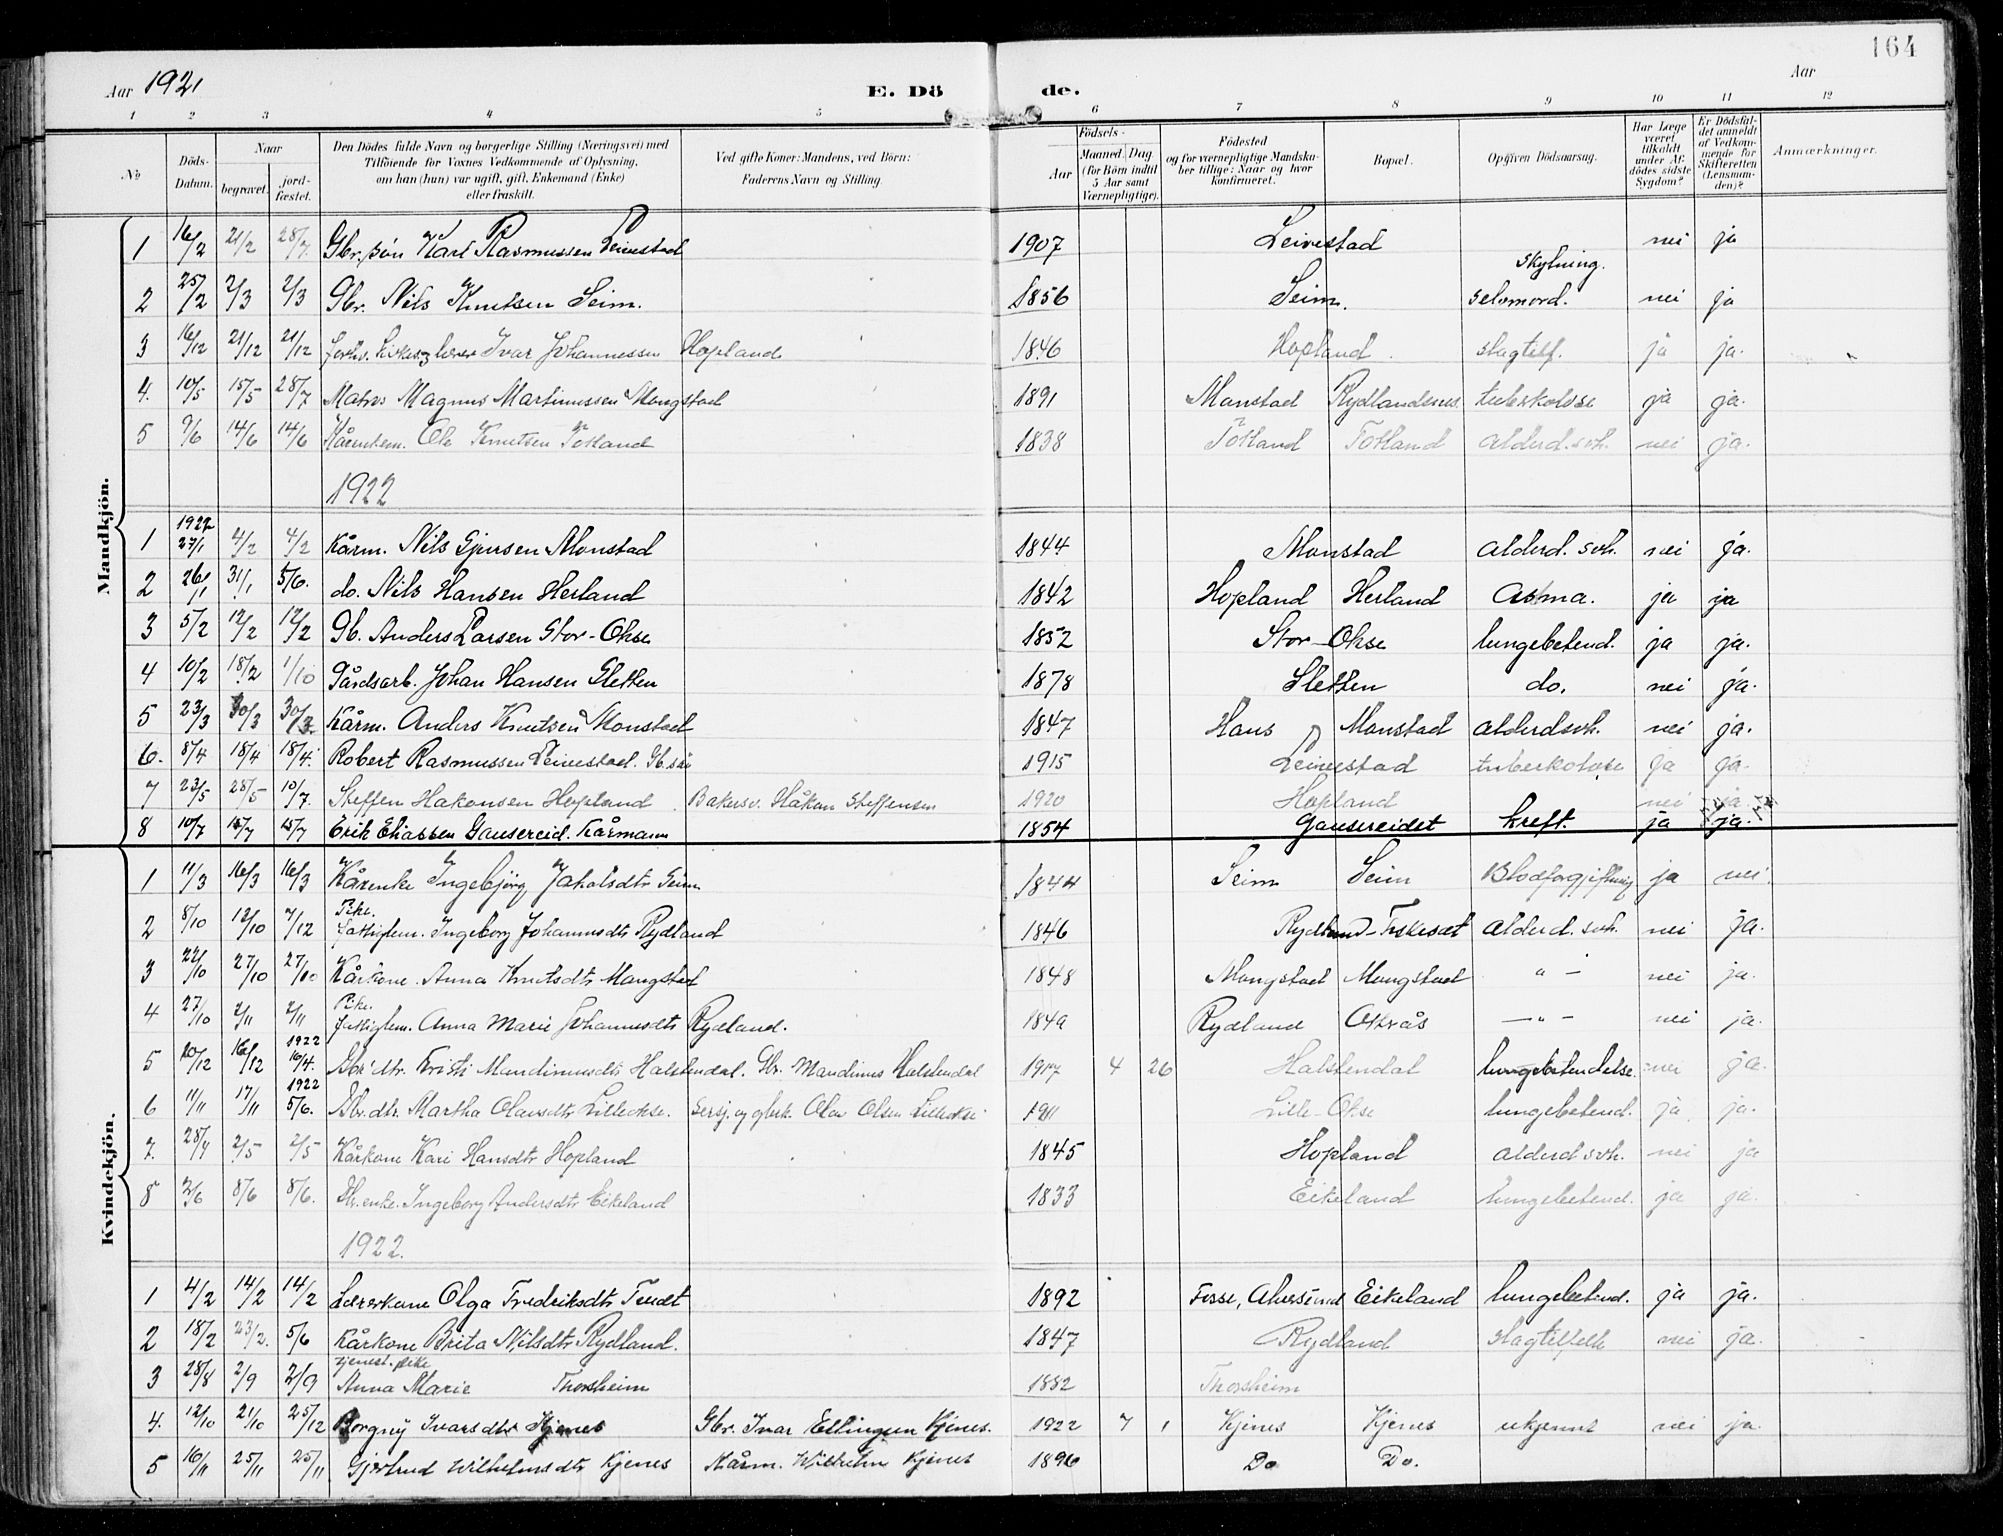 164
Aar 1921
E. Dö de.
Aar
1 2 3 4 5 6 7 8 9 10 11 12
No
Döds-Datum.
Naar
begravet.
jord-fæstet.
Den Dödes fulde Navn og borgerlige Stilling (Næringsvei) med
Tilföiende for Voxnes Vedkommende af Oplysning,
om han (hun) var ugift, gift, Enkemand (Enke)
eller fraskilt.
Ved gifte Koner: Mandens, ved Börn:
Faderens Navn og Stilling.
Födsels-
Aar
Maaned. Dag.
(for Börn indtil
5 Aar samt
Værnepligtige).
Födested
og for værnepligtige Mandska-
ber tillige: Naar og hvor
konfirmeret.
Bopæl.
Opgiven Dödsaarsag.
Har Læge
været
tilkaldt
under Af-
dödes sidste
Sygdom?
Er Dödsfal-
det anmeldt
af Vedkom-
mende for
Skifteretten
(Lensman-
den)?
Anmærkninger.
Mandkjön.
1 16/2 21/2 28/7. Gbr. sön Karl Rasmussen Leivestad 1907 Leivestad nei ja
2 25/2 2/3 2/3 Gbr. Nils Knutsen Seim. 1856 Seim. skytning. selvmord. nei ja
3 16/12 21/12 21/12 forhv. kirkesanger Ivar Johannessen Hopland 1846 Hopland slagtilf. ja ja.
4. 10/5 15/5 28/7 Matros Magnus Martinussen Mongstad 1891 Monstad Rydlandsnes. tuberkolose ja ja.
5 9/6 14/6 14/6 Kårmem. Ole Knutsen Totland 1838 Totland Totland alderd. svh. nei ja.
1922
1922
1 27/1 4/2 4/2 Kårm. Nils Gjersen Monstad 1844 Monstad alderd. svh. nei ja.
2 26/1 31/1 5/6. do. Nils Hansen Herland 1842 Hopland Herland Astma. ja ja
3 5/2 12/2 12/2 Gb. Anders Larsen Stor-Okse 1852 Stor-Okse lungebetend. ja ja.
4 10/2 18/2 1/10 Gårdsarb. Johan Hansen Sletten 1878 Sletten do. nei ja.
5 23/3 30/3 30/3 Kårm. Anders Knutsen Monstad 1847 Haus Monstad alderdsvh. nei ja.
6. 8/4 18/4 18/4. Robert Rasmussen Leivestad. Gb. sön 1915 Leivestad tuberkolose ja ja.
7 23/5 28/5 10/7. Steffen Hakonsen Hopland Bakersv. Håkon Steffensen 1920 Hopland nei ja.
8 10/7 15/7 15/7 Erik Eliassen Gausereid. Kårmann 1854 Gausereidet kreft. ja ja.
Kvindekjön.
1 11/3 16/3 16/3 Kårenke Ingebjörg Jakobsdtr Seim 1844 Seim Seim Blodforgiftning ja nei.
Pike.
2 8/10 12/10 7/12 fattiglem. Ingeborg Johannesdtr Rydland 1846 Rydland-Fiskeset alderd. svh. nei ja.
3 22/10 27/10 27/10 Kårkone. Anna Knutsdtr Mongstad 1848 Mongstad Mongstad " - nei ja.
Pike.
4 27/10 2/11 2/11 fattiglem. Anna Marie Johannesdtr Rydland. 1849 Rydland Okvås -"- nei ja.
1922
5 10/12 16/12 16/4. Gbr dtr. Kristi Mandinusdtr Halstendal. Gbr. Mandinus Halstendal 1917 4 26 Halstendal lungebetendelse. nei ja.
1922
6 11/11 17/11 5/6. Gbr. dtr. Martha Olavsdtr Lilleokse. Sersj. og gbr. Olav Olsen Lilleokse 1911 Lille-Okse lungebetend. ja ja.
7. 28/4 2/5 2/5 Kårkone Kari Hansdtr Hopland 1845 Hopland alderd svh. nei ja
8 2/6 8/6 8/6. Gbr. enke. Ingeborg Andersdtr Eikeland 1833 Eikeland lungebetend. ja ja.
1922.
1 4/2 14/2 14/2 Lærerkone Olga Fredriksdtr Tendt 1892 Fosse, Alversund Eikeland lungebetend. ja ja.
2 18/2 23/2. 5/6 Kårkone Brita Nilsdtr Rydland. 1847 Rydland slagtilfelle nei ja.
tjenest. pike
3 28/8 2/9 2/9 Anna Marie Thorsheim 1882 Thorsheim
4. 12/10 21/10 25/12 Borgny Ivarsdtr Kjenes Gbr. Ivar Ellingsen Kjenes. 1922 7 1 Kjenes Kjenes ukjennt nei ja.
5 16/11 25/11 25/11 Gjertrud Wilhelmsdtr Kjenes Kårm. Wilhelm Kjenes 1896 Do Do.